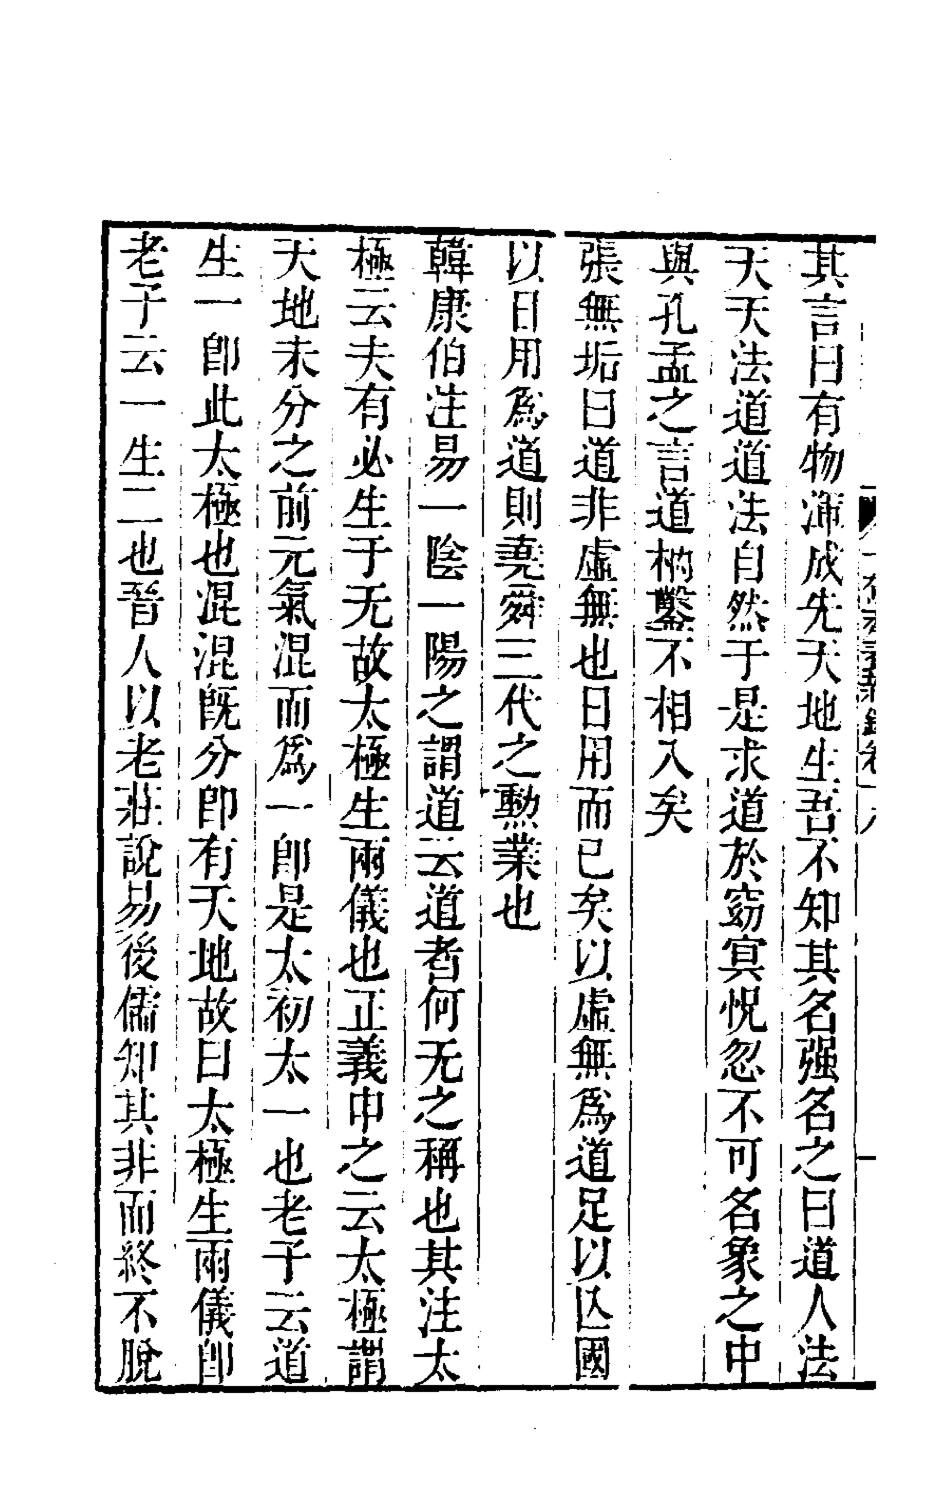 其言曰有物渾成先天地生吾不知其名强名之曰道人法
天天法道道法自然于是求道於窈冥怳忽不可名象之中
與孔孟之言道枘鑿不相入矣
張無垢曰道非虛無也日用而已矣以虛無爲道足以亾國
以日用爲道則堯舜三代之勲業也
韓康伯注易一陰一陽之謂道云道者何无之稱也其注太
極云夫有必生于无故太極生兩儀也正義申之云太極謂
天地未分之前元氣混而爲一卽是太初太一也老子云道
生一卽此太極也混混旣分卽有天地故曰太極生兩儀卽
老子云一生二也晉人以老莊說易後儒知其非而終不脫